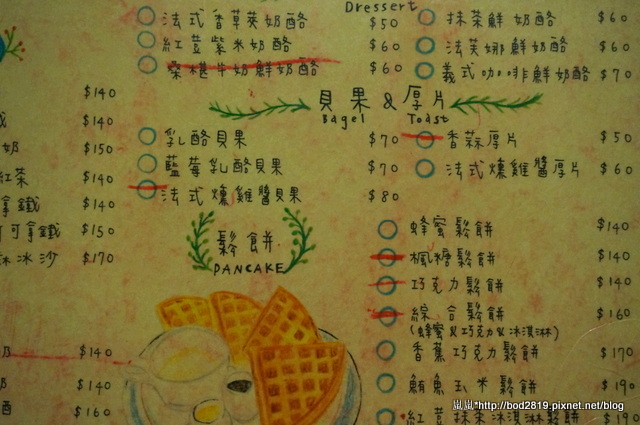 Dressert
法式香草莢奶酪 $50
紅荳紫米奶酪 $60
桑椹牛奶鮮奶酪 $60
抹茶鮮奶酪 $60
法芙娜鮮奶酪 $60
義式咖啡鮮奶酪 $70
貝果 & 厚片
Bagel Toast
乳酪貝果 $70
藍莓乳酪貝果 $70
法式燻雞醬貝果 $80
香蒜厚片 $50
法式燻雞醬厚片 $60
鬆餅
PANCAKE
蜂蜜鬆餅 $140
楓糖鬆餅 $140
巧克力鬆餅 $140
綜合鬆餅 $160
(蜂蜜&巧克力&冰淇淋)
香蕉巧克力鬆餅 $170
鮪魚玉米鬆餅 $190
紅荳抹茶冰淇淋鬆餅 $190
$140
$140
奶 $150
紅茶 $140
拿鐵 $140
可拿鐵 $150
冰沙 $170
$140
$140
$160
嵐嵐*http://bod2819.pixnet.net/blog